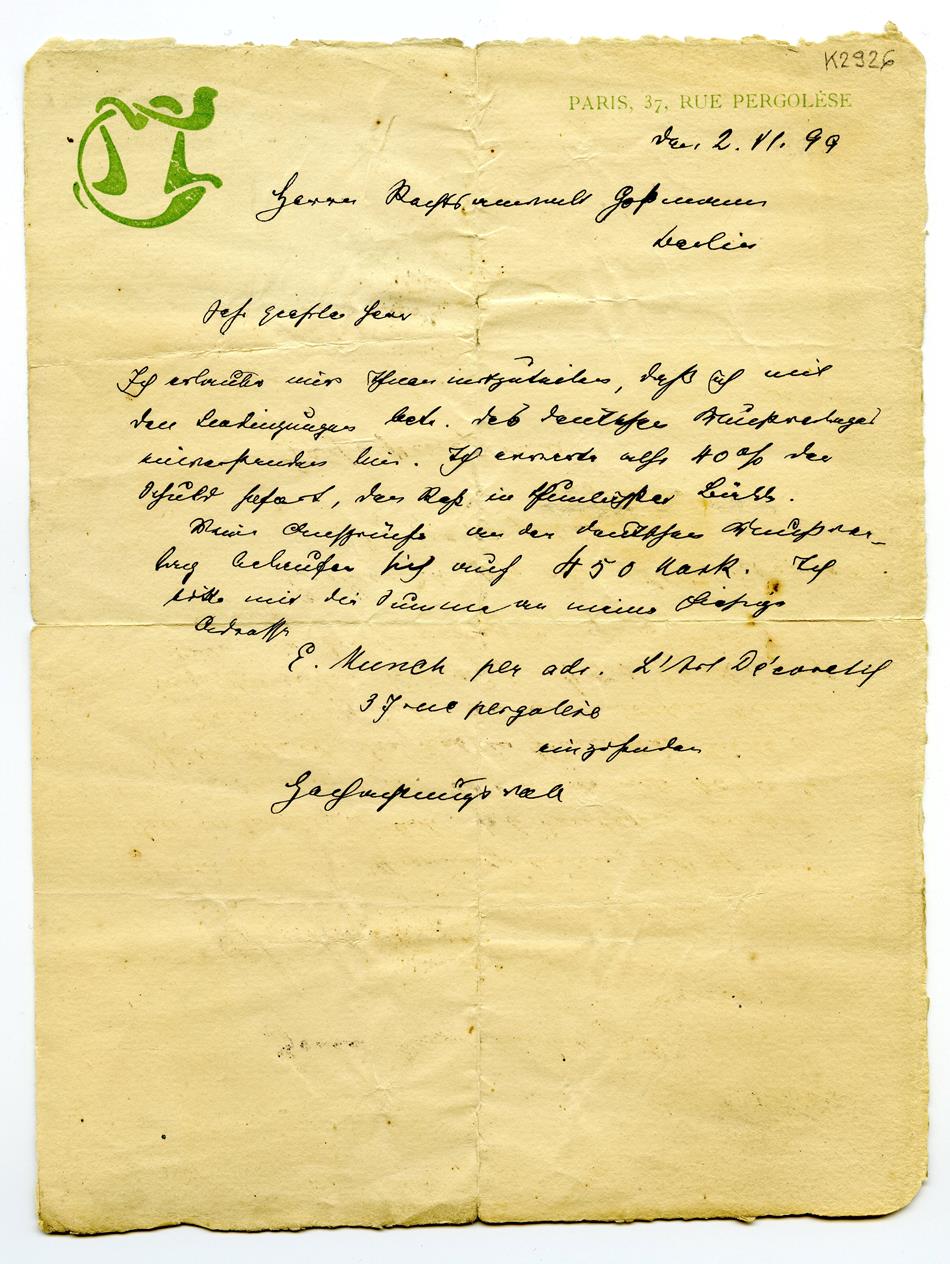 K2926
PARIS, 37, RUE PERGOLÈSE
den 2. VI. 99
Herrn Rechtsanwalt Goßmann
Berlin
Sehr geehrter Herr
Ich erlaube mir Ihnen mitzuteilen, daß ich mit
den Bedingungen betr. des deutschen Kunstverlages
einverstanden bin. Ich erwarte also 40 % der
Schuld sofort, den Rest in
Meine Ansprüche an den deutschen Kunstver-
lag belaufen sich auf 450 Mark. Ich
bitte mir die Summe an meine hiesige
Adresse
E. Munch per adr. L'Art Décoratif
37 rue pergolèse
einzusenden
Hochachtungsvoll